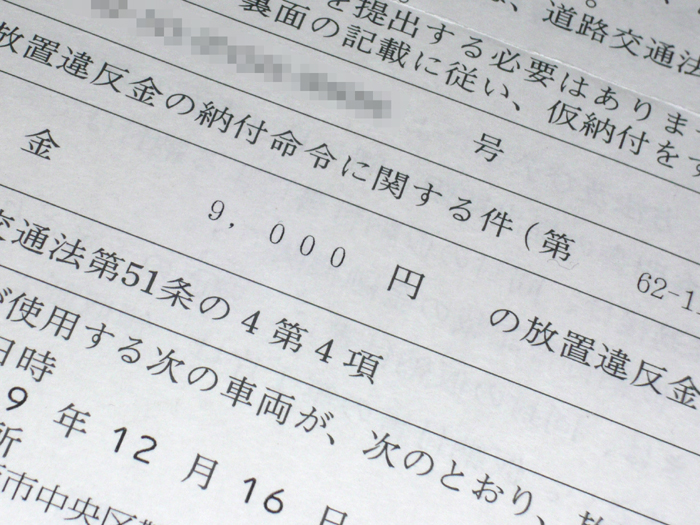 、道路交通法
を提出する必要はありま
裏面の記載に従い、仮納付をす
号
放置違反金の納付命令に関する件（第
62-1
金 9,000円 の放置違反金
交通法第51条の4第4項
が使用する次の車両が、次のとおり、放
日時
9年12月16日
所
市中央区